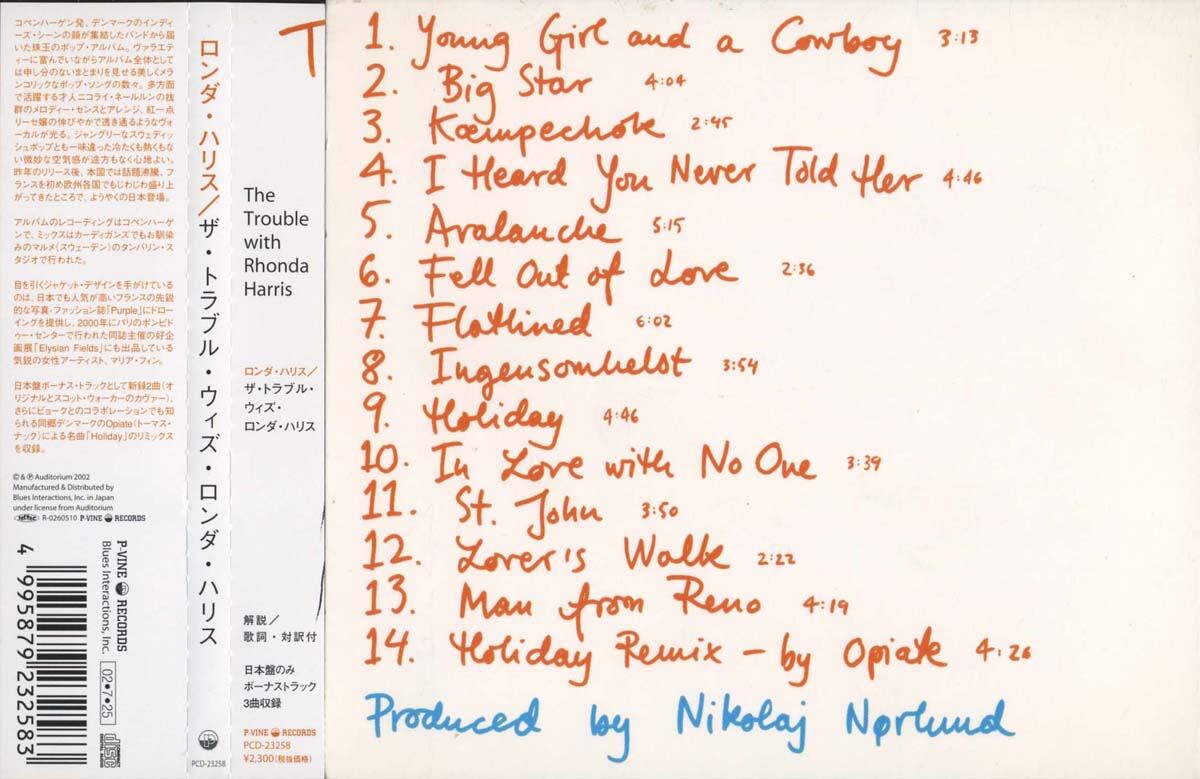 コペンハーゲン発、デンマークのインディ
ーズ・シーンの顔が集結したバンドから届
いた珠玉のポップ・アルバム。ヴァラエテ
ィーに富んでいながらアルバム全体として
は申し分のないまとまりを見せる美しくメラ
ンコリックなポップ・ソングの数々。多方面
で活躍する才人ニコライ・ネールルンの抜
群のメロディー・センスとアレンジ、紅一点
リーセ嬢の伸びやかで透き通るようなヴォ
ーカルが光る。ジャングリーなスウェディッ
シュポップとも一味違った冷たくも熱くもな
い微妙な空気感が途方もなく心地よい。
昨年のリリース後、本国では話題沸騰、フ
ランスを初め欧州各国でもじわじわ盛り上
がってきたところで、ようやくの日本登場。
アルバムのレコーディングはコペンハーゲ
ンで、ミックスはカーディガンズでもお馴染
みのマルメ(スウェーデン)のタンバリン・ス
タジオで行われた。
目を引くジャケット・デザインを手がけている
のは、日本でも人気が高いフランスの先鋭
的な写真・ファッション誌「Purple」にドロー
イングを提供し、2000年にパリのポンピド
ゥー・センターで行われた同誌主催の好企
画展「Elysian Fields」にも出品している
気鋭の女性アーティスト、マリア・フィン。
日本盤ボーナス・トラックとして新録2曲(オ
リジナルとスコット・ウォーカーのカヴァー)、
さらにビョークとのコラボレーションでも知
られる同郷デンマークのOpiate(トーマス・
ナック)による名曲「Holiday」のリミックス
を収録。
© & ℗ Auditorium 2002
Manufactured & Distributed by
Blues Interactions, Inc. in Japan
under license from Auditorium
R-0260510 P-VINE RECORDS
4 995879 232583
P-VINE RECORDS
Blues Interactions, Inc.
02・7・25
ロンダ・ハリス/ザ・トラブル・ウィズ・ロンダ・ハリス
PCD-23258
T
The
Trouble
with
Rhonda
Harris
ロンダ・ハリス/
ザ・トラブル・
ウィズ・
ロンダ・ハリス
解説/
歌詞・対訳付
日本盤のみ
ボーナストラック
3曲収録
P-VINE RECORDS
PCD-23258
¥2,300(税抜価格)
1. Young Girl and a Cowboy 3:13
2. Big Star 4:04
3. Kæmpechok 2:45
4. I Heard You Never Told Her 4:46
5. Avalanche 5:15
6. Fell Out of Love 2:36
7. Flatlined 6:02
8. Ingensomhelst 3:54
9. Holiday 4:46
10. In Love with No One 3:39
11. St. John 3:50
12. Lover's Walk 2:22
13. Man from Reno 4:19
14. Holiday Remix - by Opiate 4:26
Produced by Nikolaj Nørlund